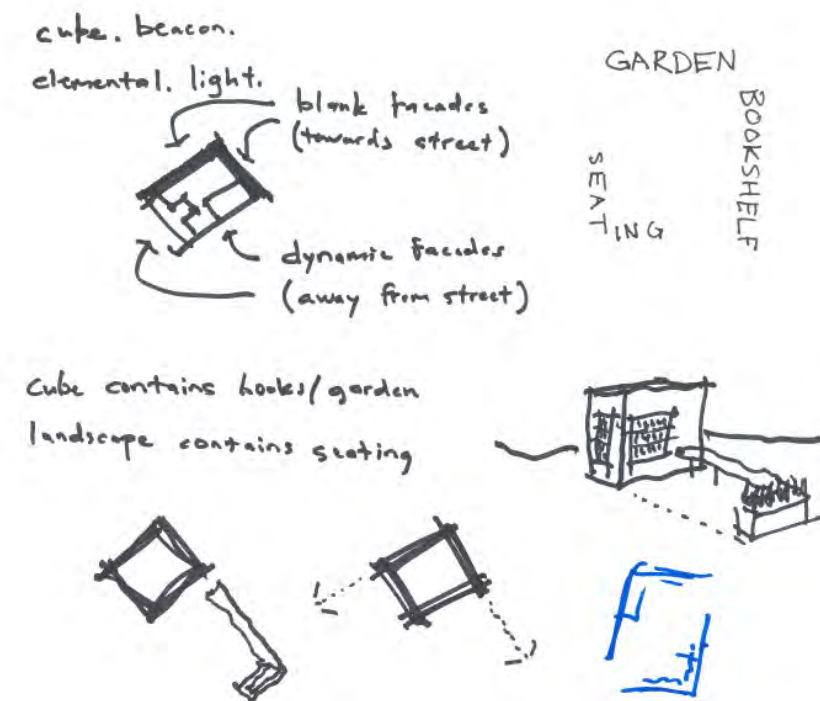 cube. beacon.
elemental. light.
blank facades
(towards street)
dynamic facades
(away from street)
GARDEN
BOOKSHELF
SEATING
cube contains books/garden
landscape contains seating